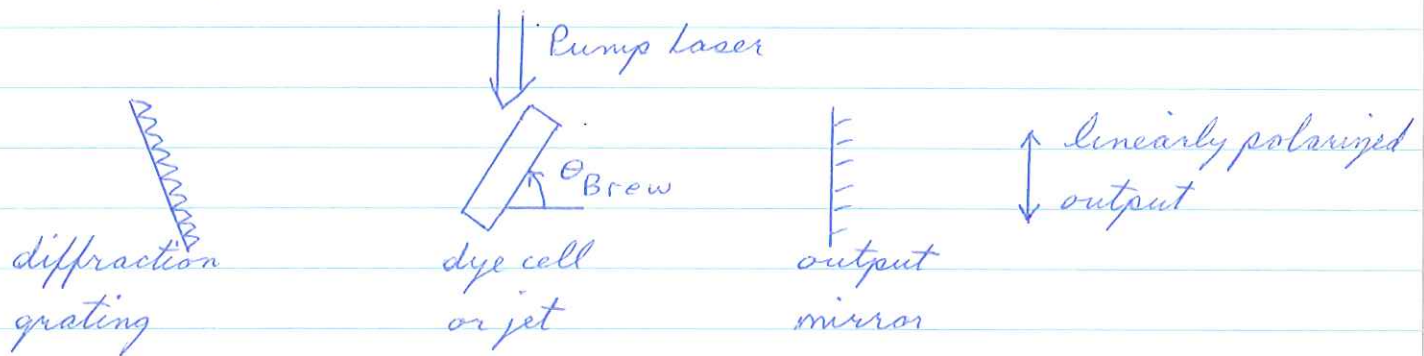 Pump Laser
θBrew
linearly polarized
output
diffraction
grating
dye cell
or jet
output
mirror